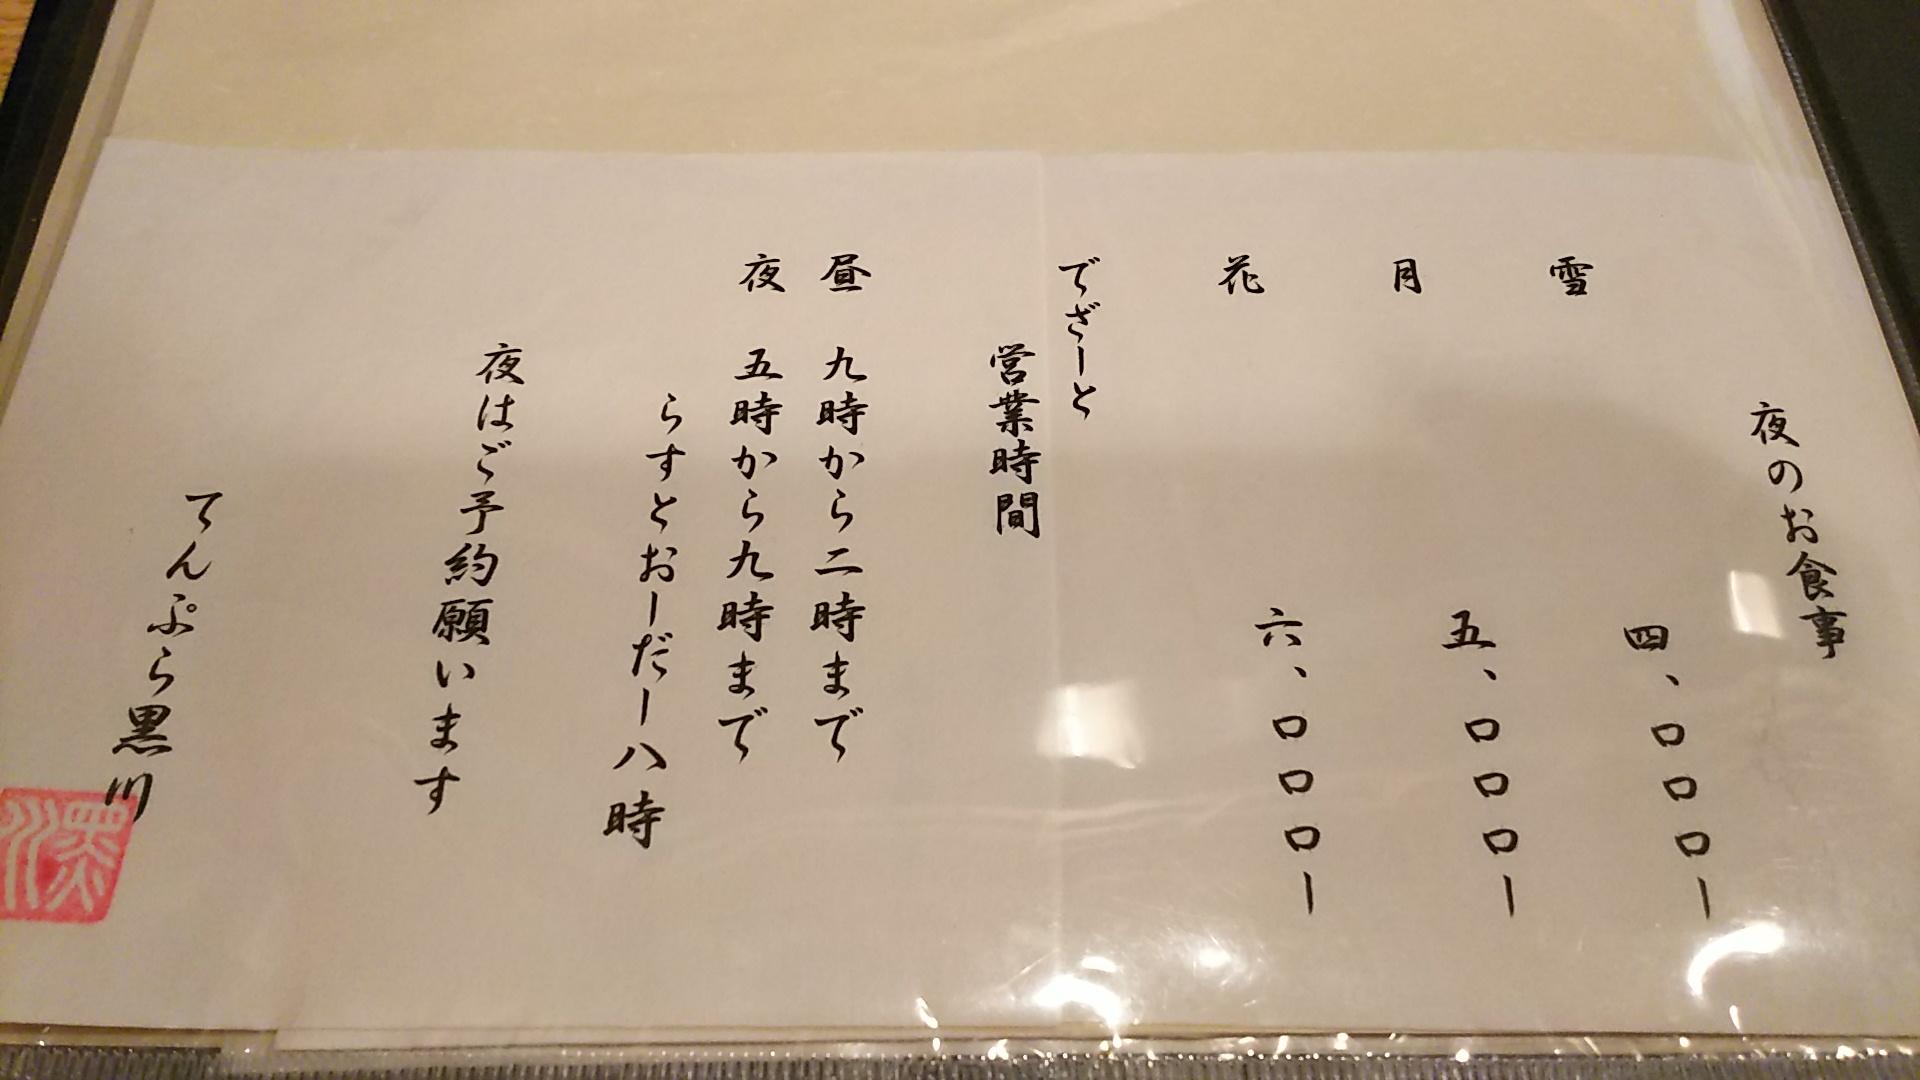 夜のお食事
雪 四、〇〇〇ー
月 五、〇〇〇ー
花 六、〇〇〇ー
でざーと
営業時間
昼 九時から二時まで
夜 五時から九時まで
らすとおーだー八時
夜はご予約願います
てんぷら黒川